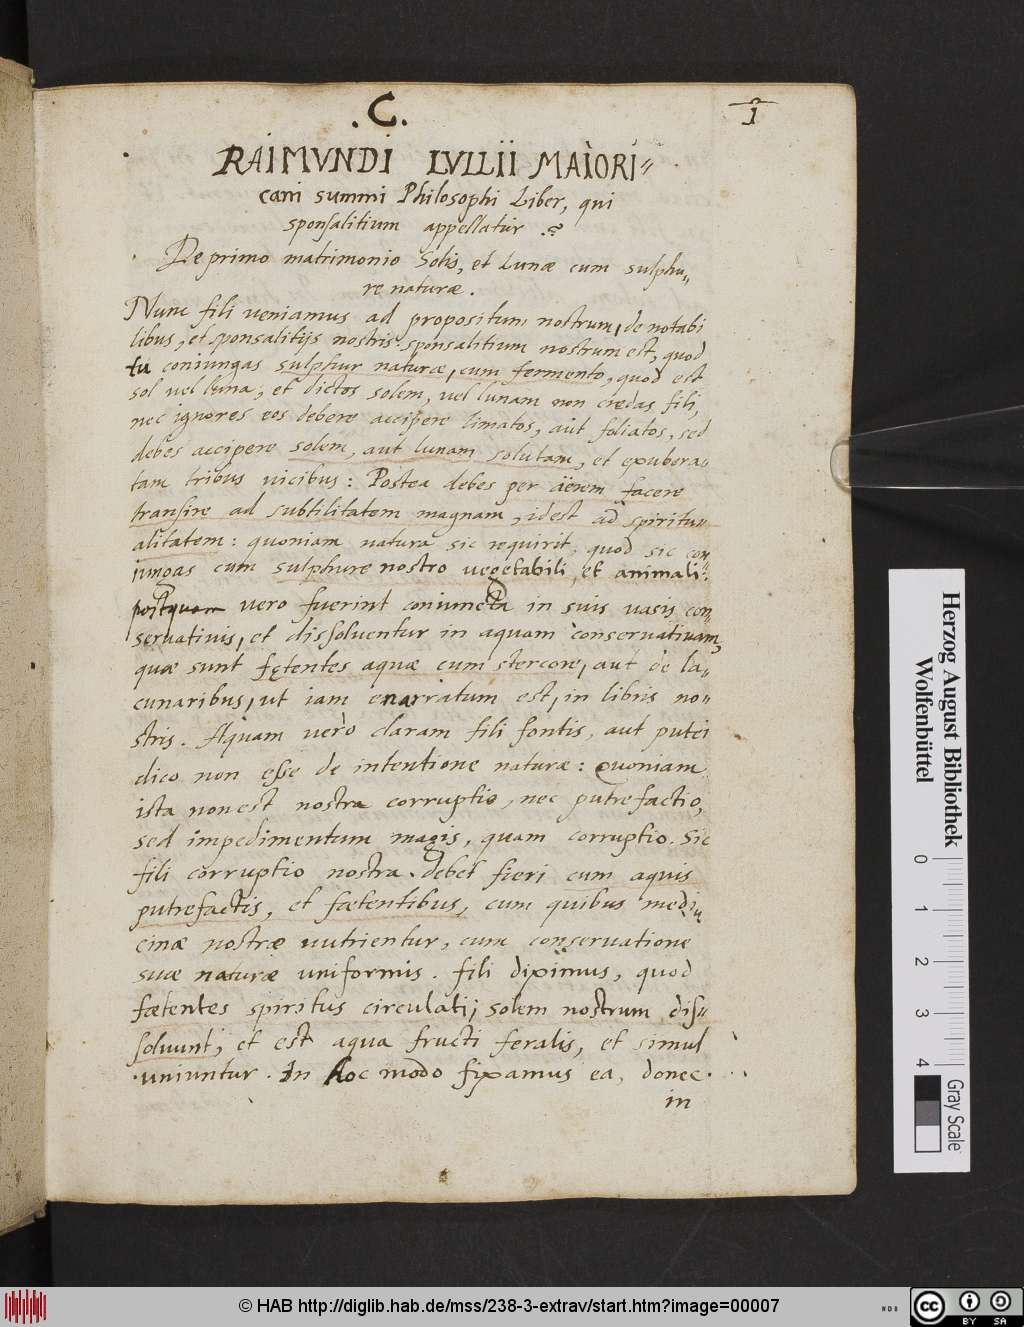 .C.
1
RAIMVNDI LVLLII MAIORI=
cani summi Philosophi Liber, qui
sponsalitium appellatur.
De primo matrimonio Solis, et Lunæ cum sulphu=
re naturæ.
Nunc fili veniamus ad propositum nostrum, de notabi
libus, et sponsalitijs nostris. sponsalitium nostrum est, quod
tu coniungas sulphur naturæ, cum fermento, quod est
sol vel luna; et dictos solem, vel lunam non credas fili,
nec ignores eos debere accipere limatos, aut foliatos, sed
debes accipere solem, aut lunam solutam, et exubera=
tam tribus vicibus: Postea debes per äerem facere
transire ad subtilitatem magnam, idest ad spiritu=
alitatem: quoniam natura sic requirit, quod sic con=
iungas cum sulphure nostro vegetabili, et animali:
postquam vero fuerint coniuncta in suis vasis con=
servativis, et dissolventur in aquam conservativam,
quæ sunt fętentes aquæ cum stercore, aut de la=
cunaribus, ut iam enarratum est, in libris no=
stris. Aquam verò claram fili fontis, aut putei
dico non esse de intentione naturæ: Quoniam
ista non est nostra corruptio, nec putrefactio,
sed impedimentum magis, quam corruptio. Sic
fili corruptio nostra debet fieri cum aquis
putrefactis, et fœtentibus, cum quibus medi=
cinæ nostræ nutrientur, cum conservatione
suæ naturæ uniformis. fili diximus, quod
fœtentes spiritus circulati, solem nostrum dis=
solvunt, et est aqua fructi feralis, et simul
uniuntur. In hoc modo fixamus ea, donec
in
Herzog August Bibliothek
Wolfenbüttel
0 1 2 3 4
Gray Scale
© HAB http://diglib.hab.de/mss/238-3-extrav/start.htm?image=00007
NDB
cc BY SA